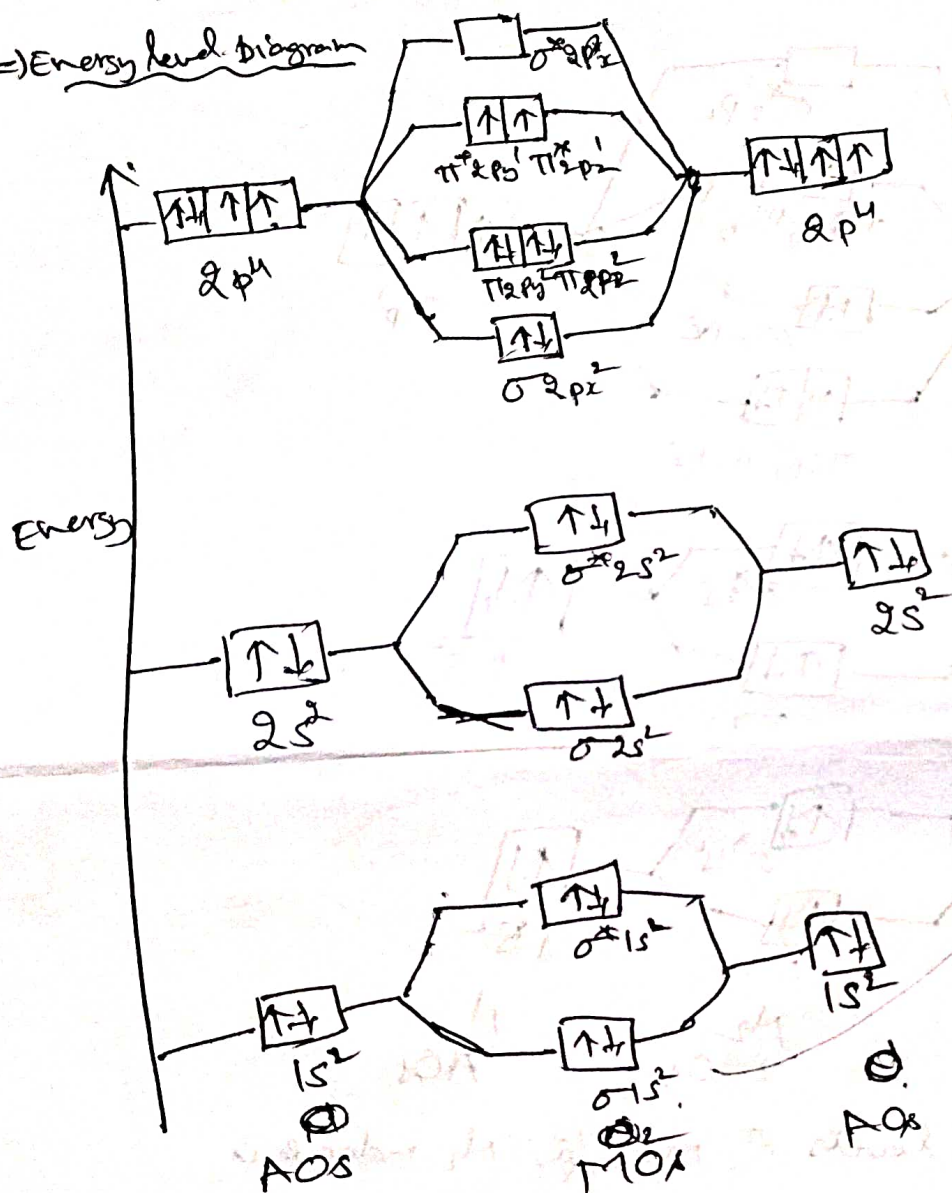 =) Energy level Diagram
σ*2px
↑ ↑
π*2py¹ π*2pz¹
↑↓ ↑ ↑
2p⁴
↑↓ ↑ ↑
2p⁴
↑↓ ↑↓
π2py² π2pz²
↑↓
σ2px²
Energy
↑↓
σ*2s²
↑↓
2s²
↑↓
2s²
↑↓
σ2s²
↑↓
σ*1s²
↑↓
1s²
↑↓
1s²
↑↓
σ1s²
O
O2
O
AOs
MOs
AOs